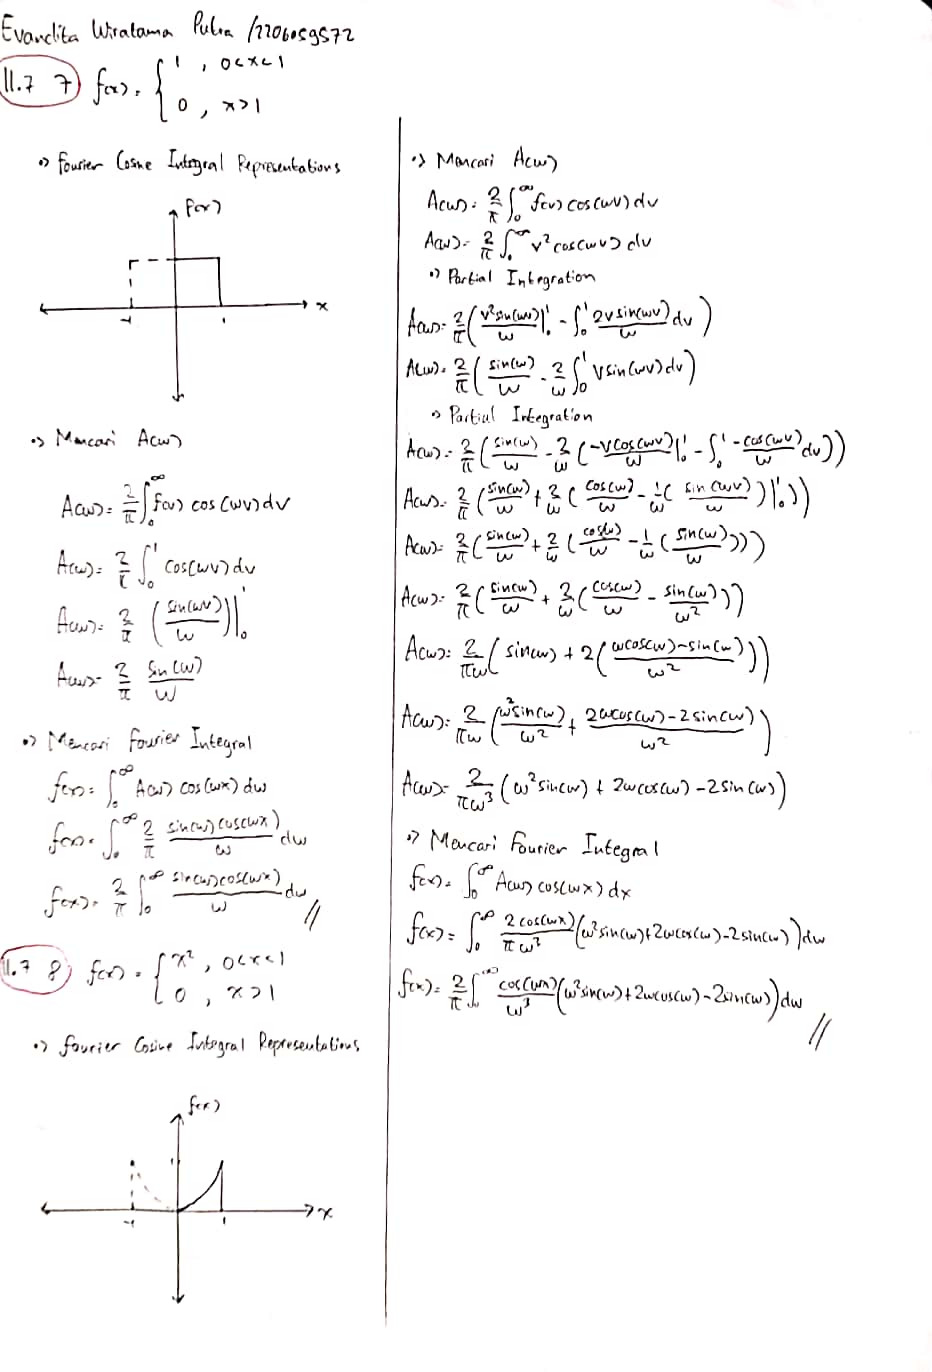 Evandita Wiratama Putra / 2206059572
11.7 7) f(x) = { 1 , 0<x<1
0 , x>1
•> Fourier Cosine Integral Representations
f(x)
x
-1 1
•> Mencari A(w)
A(w) = 2/π ∫₀^∞ f(v) cos (wv) dv
A(w) = 2/π ∫₀¹ cos(wv) dv
A(w) = 2/π (sin(wv)/w)|₀¹
A(w) = 2/π sin(w)/w
•> Mencari Fourier Integral
f(x) = ∫₀^∞ A(w) cos(wx) dw
f(x) = ∫₀^∞ 2/π sin(w)cos(wx)/w dw
f(x) = 2/π ∫₀^∞ sin(w)cos(wx)/w dw //
11.7 8) f(x) = { x² , 0<x<1
0 , x>1
•> Fourier Cosine Integral Representations
f(x)
x
-1 1
•> Mencari A(w)
A(w) = 2/π ∫₀^∞ f(v) cos(wv) dv
A(w) = 2/π ∫₀^∞ v² cos(wv) dv
•> Partial Integration
A(w) = 2/π (v² sin(wv)/w |₀¹ - ∫₀¹ 2v sin(wv)/w dv)
A(w) = 2/π (sin(w)/w - 2/w ∫₀¹ v sin(wv) dv)
•> Partial Integration
A(w) = 2/π (sin(w)/w - 2/w (-v cos(wv)/w |₀¹ - ∫₀¹ -cos(wv)/w dv))
A(w) = 2/π (sin(w)/w + 2/w (cos(w)/w - 1/w (sin(wv)/w)|₀¹))
A(w) = 2/π (sin(w)/w + 2/w (cos(w)/w - 1/w (sin(w)/w)))
A(w) = 2/π (sin(w)/w + 2/w (cos(w)/w - sin(w)/w²))
A(w) = 2/πw (sin(w) + 2(wcos(w)-sin(w)/w²))
A(w) = 2/πw (w²sin(w)/w² + 2wcos(w)-2sin(w)/w²)
A(w) = 2/πw³ (w²sin(w) + 2wcos(w) - 2sin(w))
•> Mencari Fourier Integral
f(x) = ∫₀^∞ A(w) cos(wx) dx
f(x) = ∫₀^∞ 2cos(wx)/πw³ (w²sin(w)+2wcos(w)-2sin(w)) dw
f(x) = 2/π ∫₀^∞ cos(wx)/w³ (w²sin(w)+2wcos(w)-2sin(w)) dw //